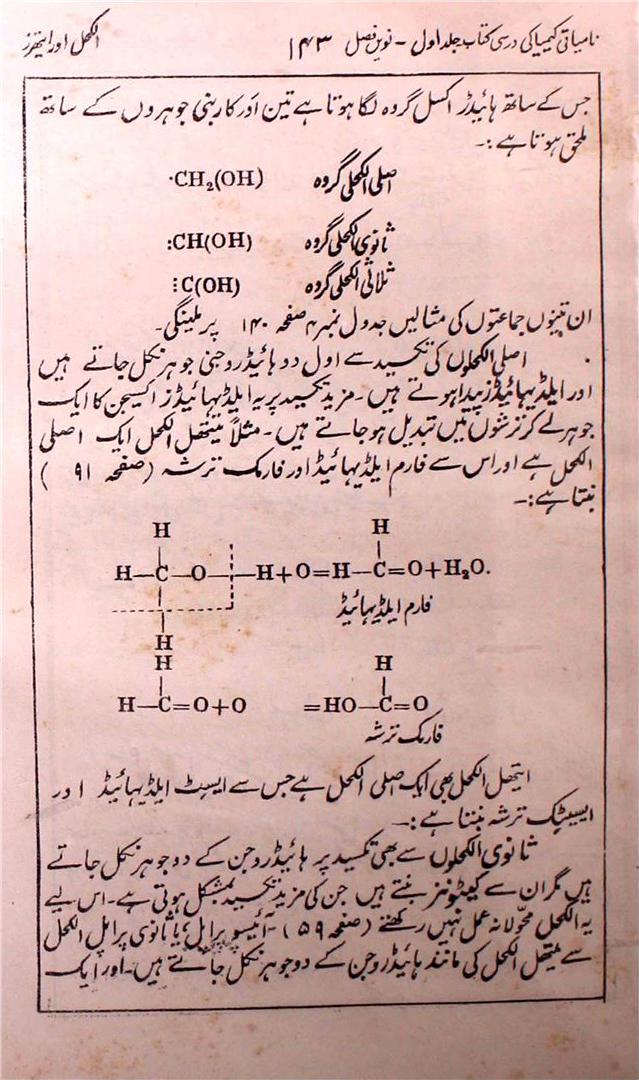 نامیاتی کیمیا کی درسی کتاب جلد اول - نویں فصل ۱۴۳ الکحل اور ایتھرز
جس کے ساتھ ہائیڈر اکسل گروہ لگا ہوتا ہے تین اَور کاربنی جوہروں کے ساتھ
ملحق ہوتا ہے :-
اصلی الکحلی گروہ ·CH₂(OH)
ثانوی الکحلی گروہ :CH(OH)
ثلاثی الکحلی گروہ ⫶C(OH)
ان تینوں جماعتوں کی مثالیں جدول نمبر ۴ صفحہ ۱۴۰ پر ملینگی۔
اصلی الکحلوں کی تکسید سے اول دو ہائیڈروجنی جوہر نکل جاتے ہیں
اور ایلڈیہائیڈز پیدا ہوتے ہیں۔ مزید تکسید پر یہ ایلڈیہائیڈز اکسیجن کا ایک
جوہر لے کر ترشوں میں تبدیل ہو جاتے ہیں۔ مثلاً میتھل الکحل ایک اصلی
الکحل ہے اور اس سے فارم ایلڈیہائیڈ اور فارمک ترشہ (صفحہ ۹۱)
بنتا ہے :-
H H
H—C—O—H+O=H—C=O+H₂O.
فارم ایلڈیہائیڈ
H
H H
H—C=O+O =HO—C=O
فارمک ترشہ
ایتھل الکحل بھی ایک اصلی الکحل ہے جس سے ایسٹ ایلڈیہائیڈ اور
ایسیٹک ترشہ بنتا ہے :-
ثانوی الکحلوں سے بھی تکسید پر ہائیڈروجن کے دو جوہر نکل جاتے
ہیں مگر ان سے کیٹونز بنتے ہیں جن کی مزید تکسید بمشکل ہوتی ہے۔ اس لیے
یہ الکحل محوّلانہ عمل نہیں رکھتے (صفحہ ۵۹)۔ آئیسو پراپل یا ثانوی پراپل الکحل
سے میتھل الکحل کی مانند ہائیڈروجن کے دو جوہر نکل جاتے ہیں۔ اور ایک